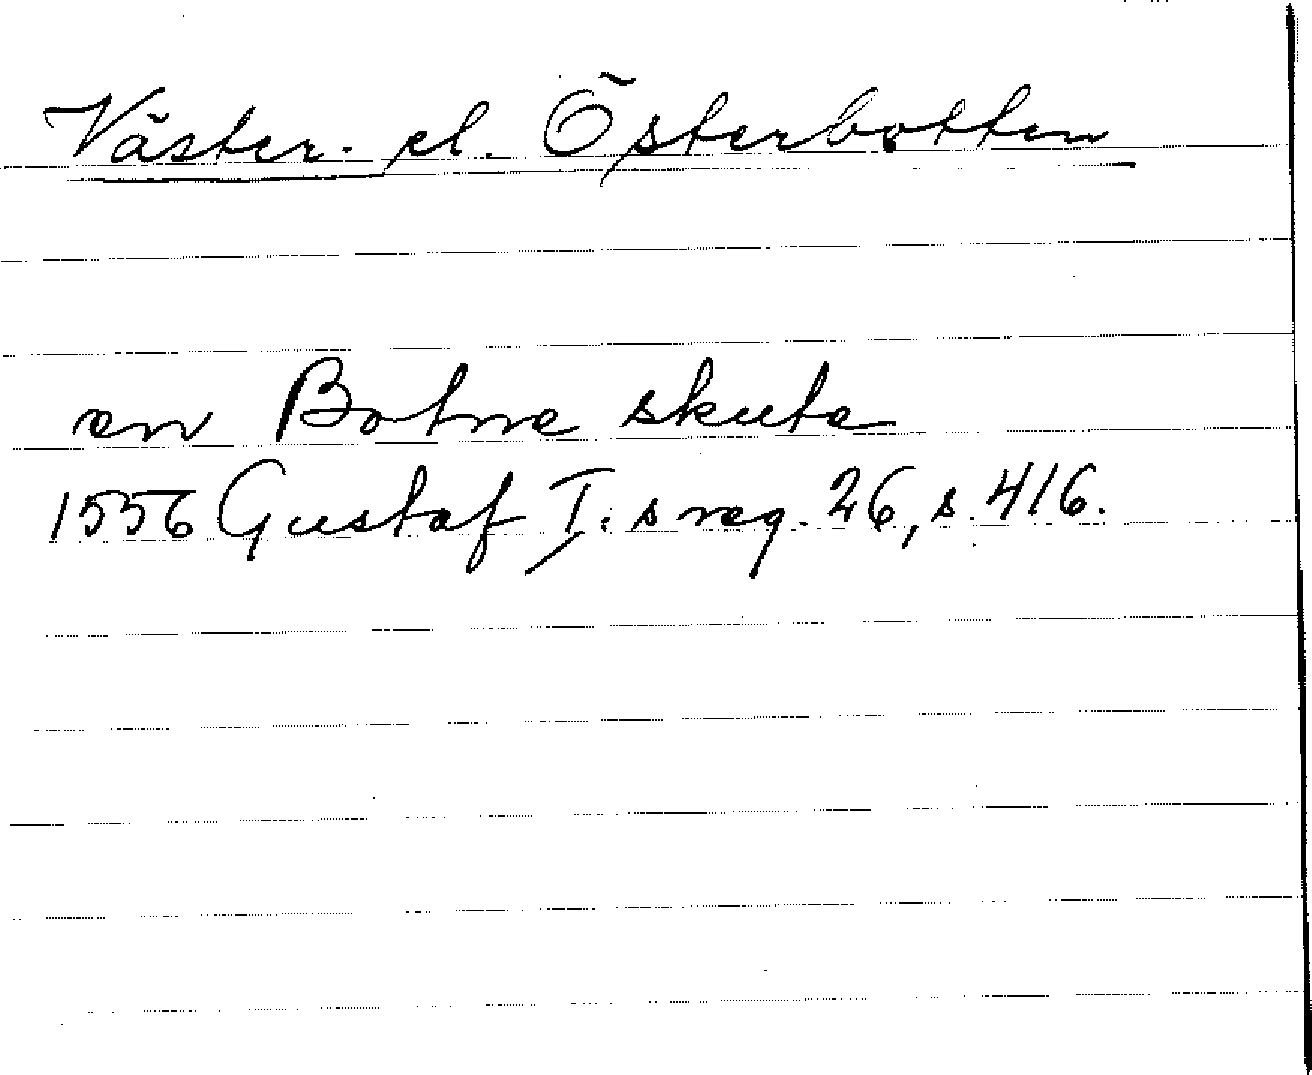 Väster- el. Österbotten
en Botne skute
1556 Gustaf I:s reg. 26, s. 416.